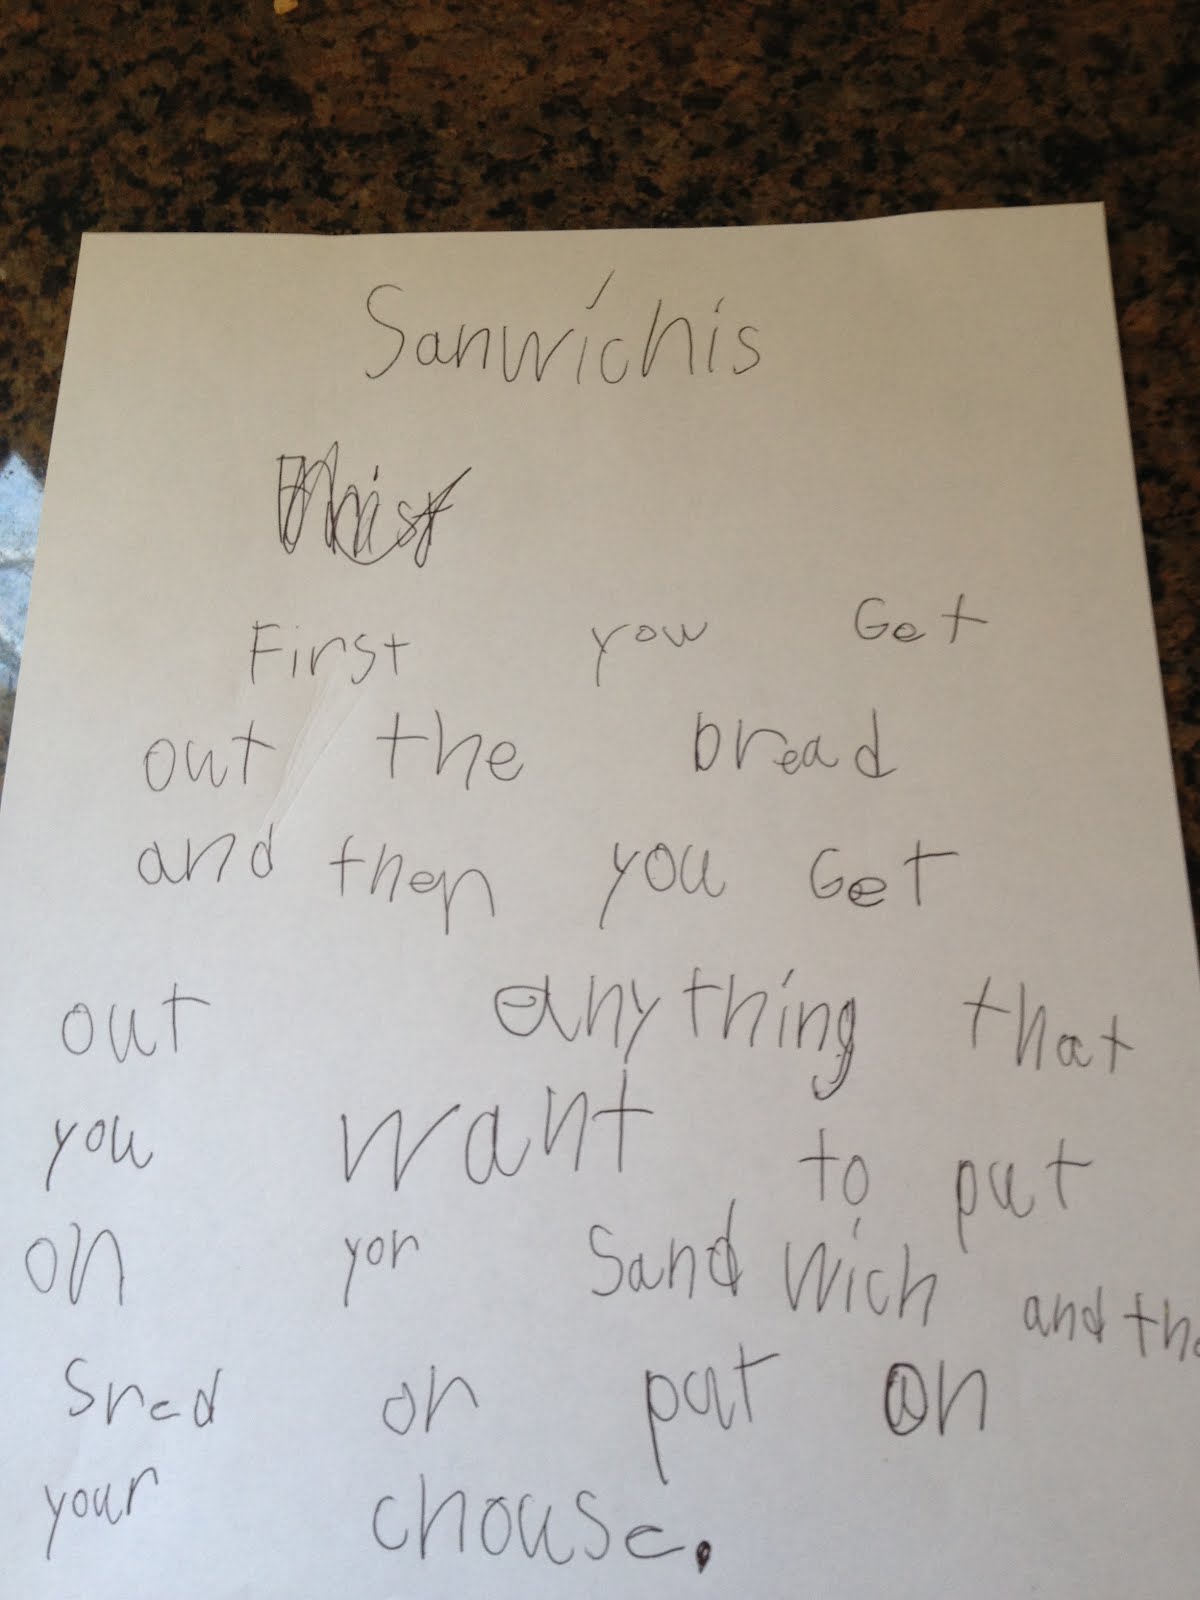 Sanwichis
First you Get
out the bread
and then you Get
out anything that
you want to put
on yor Sandwich and
Sred or put on
your chouse.